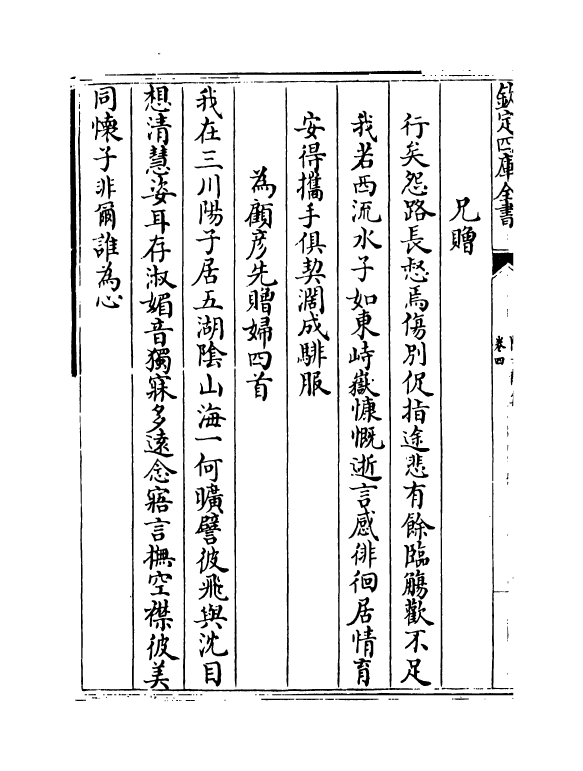 欽定四庫全書
卷四
兄贈
行矣怨路長惄焉傷別促指途悲有餘臨觴歡不足
我若西流水子如東峙嶽慷慨逝言感徘徊居情育
安得攜手俱契濶成騑服
為顧彥先贈婦四首
我在三川陽子居五湖隂山海一何曠譬彼飛與沈目
想清慧姿耳存淑媚音獨寐多遠念寤言撫空襟彼美
同懷子非爾誰為心